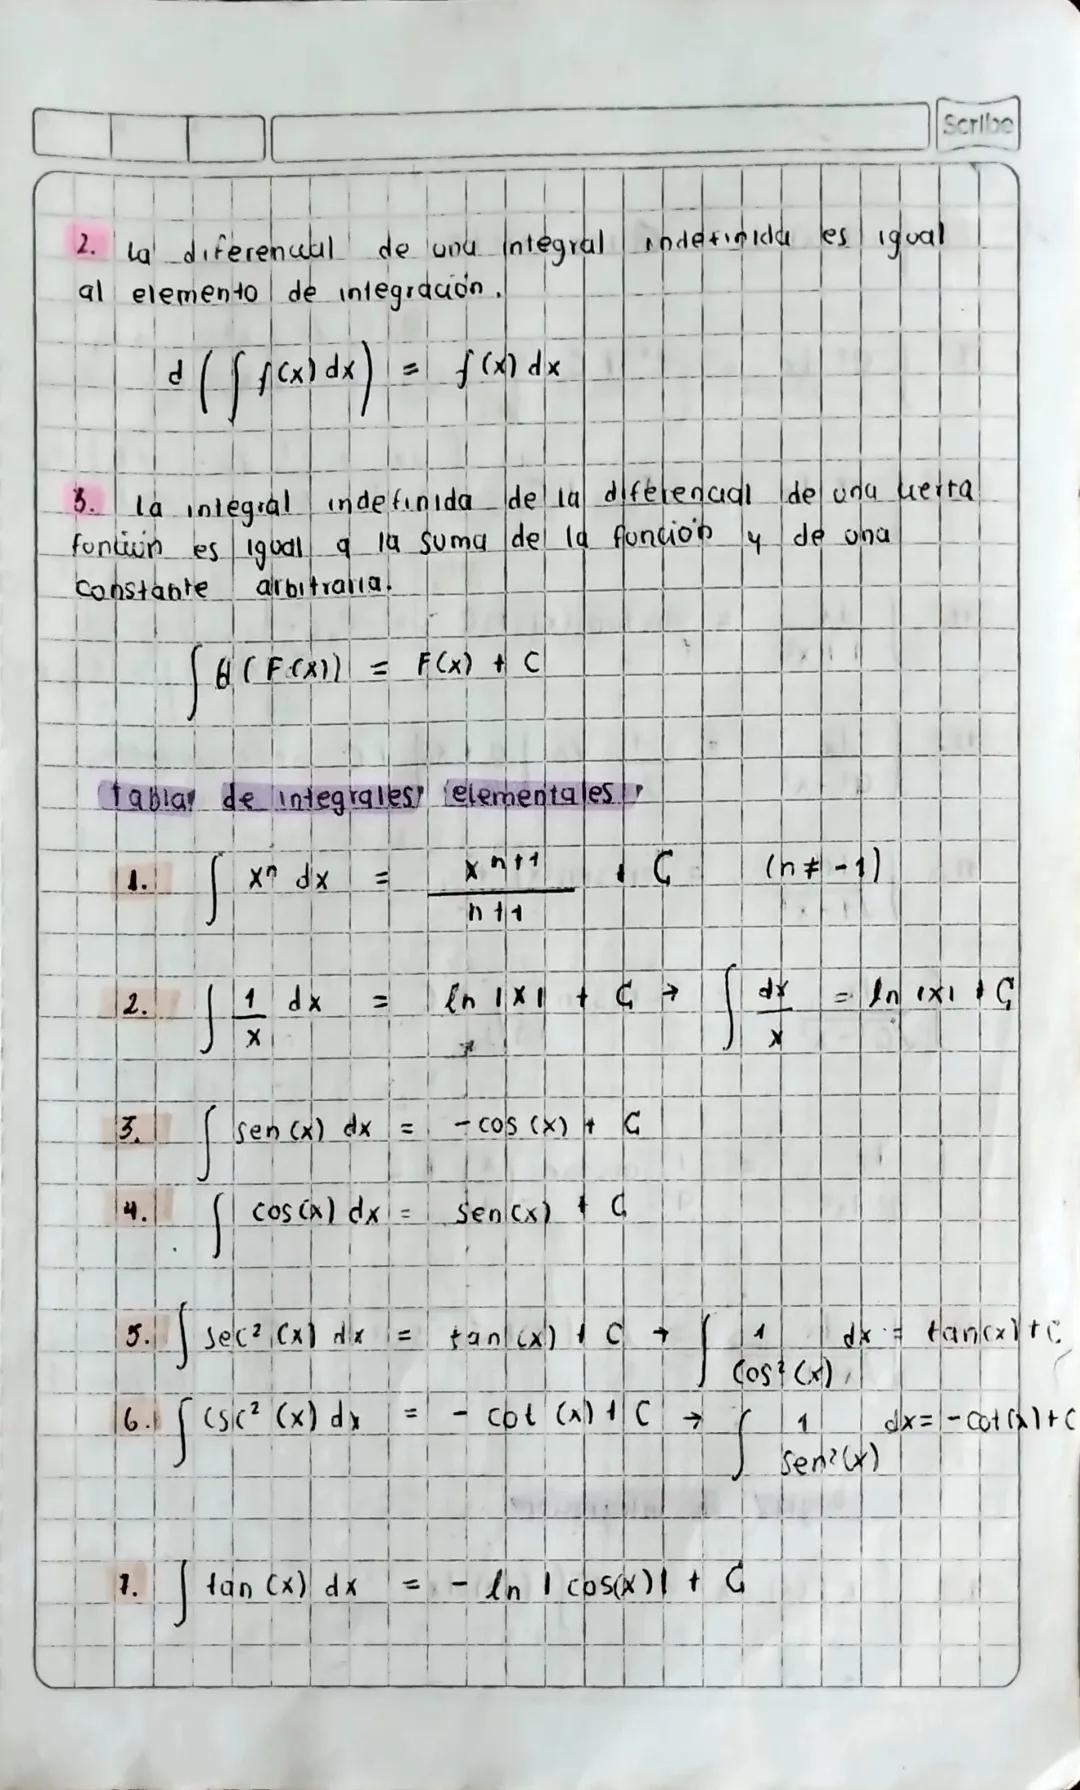 Scribe
2. La diferencial de una integral indefinida es igual
al elemento de integración.
d ( ∫ f(x) dx ) = f(x) dx
3. La integral indefinida de la diferencial de una cierta
función es igual a la suma de la función y de una
constante arbitraria.
∫ d (F(x)) = F(x) + C
Tablas de integrales elementales
1. ∫ xⁿ dx = xⁿ⁺¹ / n+1 + C (n ≠ -1)
2. ∫ 1/x dx = ln |x| + C → ∫ dx/x = ln |x| + C
3. ∫ sen(x) dx = -cos(x) + C
4. ∫ cos(x) dx = sen(x) + C
5. ∫ sec²(x) dx = tan(x) + C → ∫ 1/cos²(x) dx = tan(x) + C
6. ∫ csc²(x) dx = -cot(x) + C → ∫ 1/sen²(x) dx = -cot(x) + C
7. ∫ tan(x) dx = -ln |cos(x)| + C